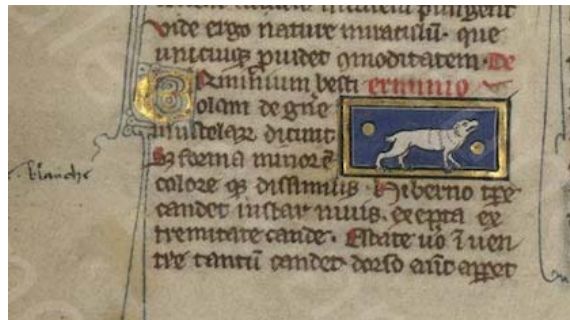 vide ergo nature miraculū. que
unicuiqꝫ ꝓuidet ꝯmoditatem. De
Erminium besti erminio
olam de gn̄e
mustelaꝝ dicunt
Sꝫ forma minor ē
blanche
colore qꝫ dissimilis. Hiberno tp̄e
candet instar niuis. excepta ex
tremitate caude. Estate u̓o ī uen
tre tantū candet. dorso aūt apꝑet